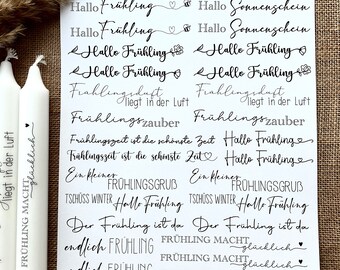 Hallo Frühling Hallo Sonnenschein
Hallo Frühling Hallo Sonnenschein
Hallo Frühling Hallo Frühling
Hallo Frühling Hallo Frühling
Frühlingsduft liegt in der Luft Frühlingsduft liegt in der Luft
Frühlingszauber Frühlingszauber
Frühlingszeit ist die schönste Zeit Hallo Frühling
Frühlingszeit ist die schönste Zeit Hallo Frühling
Ein kleiner FRÜHLINGSGRUß Ein kleiner FRÜHLINGSGRUß
TSCHÜSS WINTER Hallo Frühling TSCHÜSS WINTER Hallo Frühling
Der Frühling ist da Der Frühling ist da
endlich FRÜHLING FRÜHLING MACHT glücklich
endlich FRÜHLING FRÜHLING MACHT glücklich
liegt in der Luft
FRÜHLING MACHT glücklich